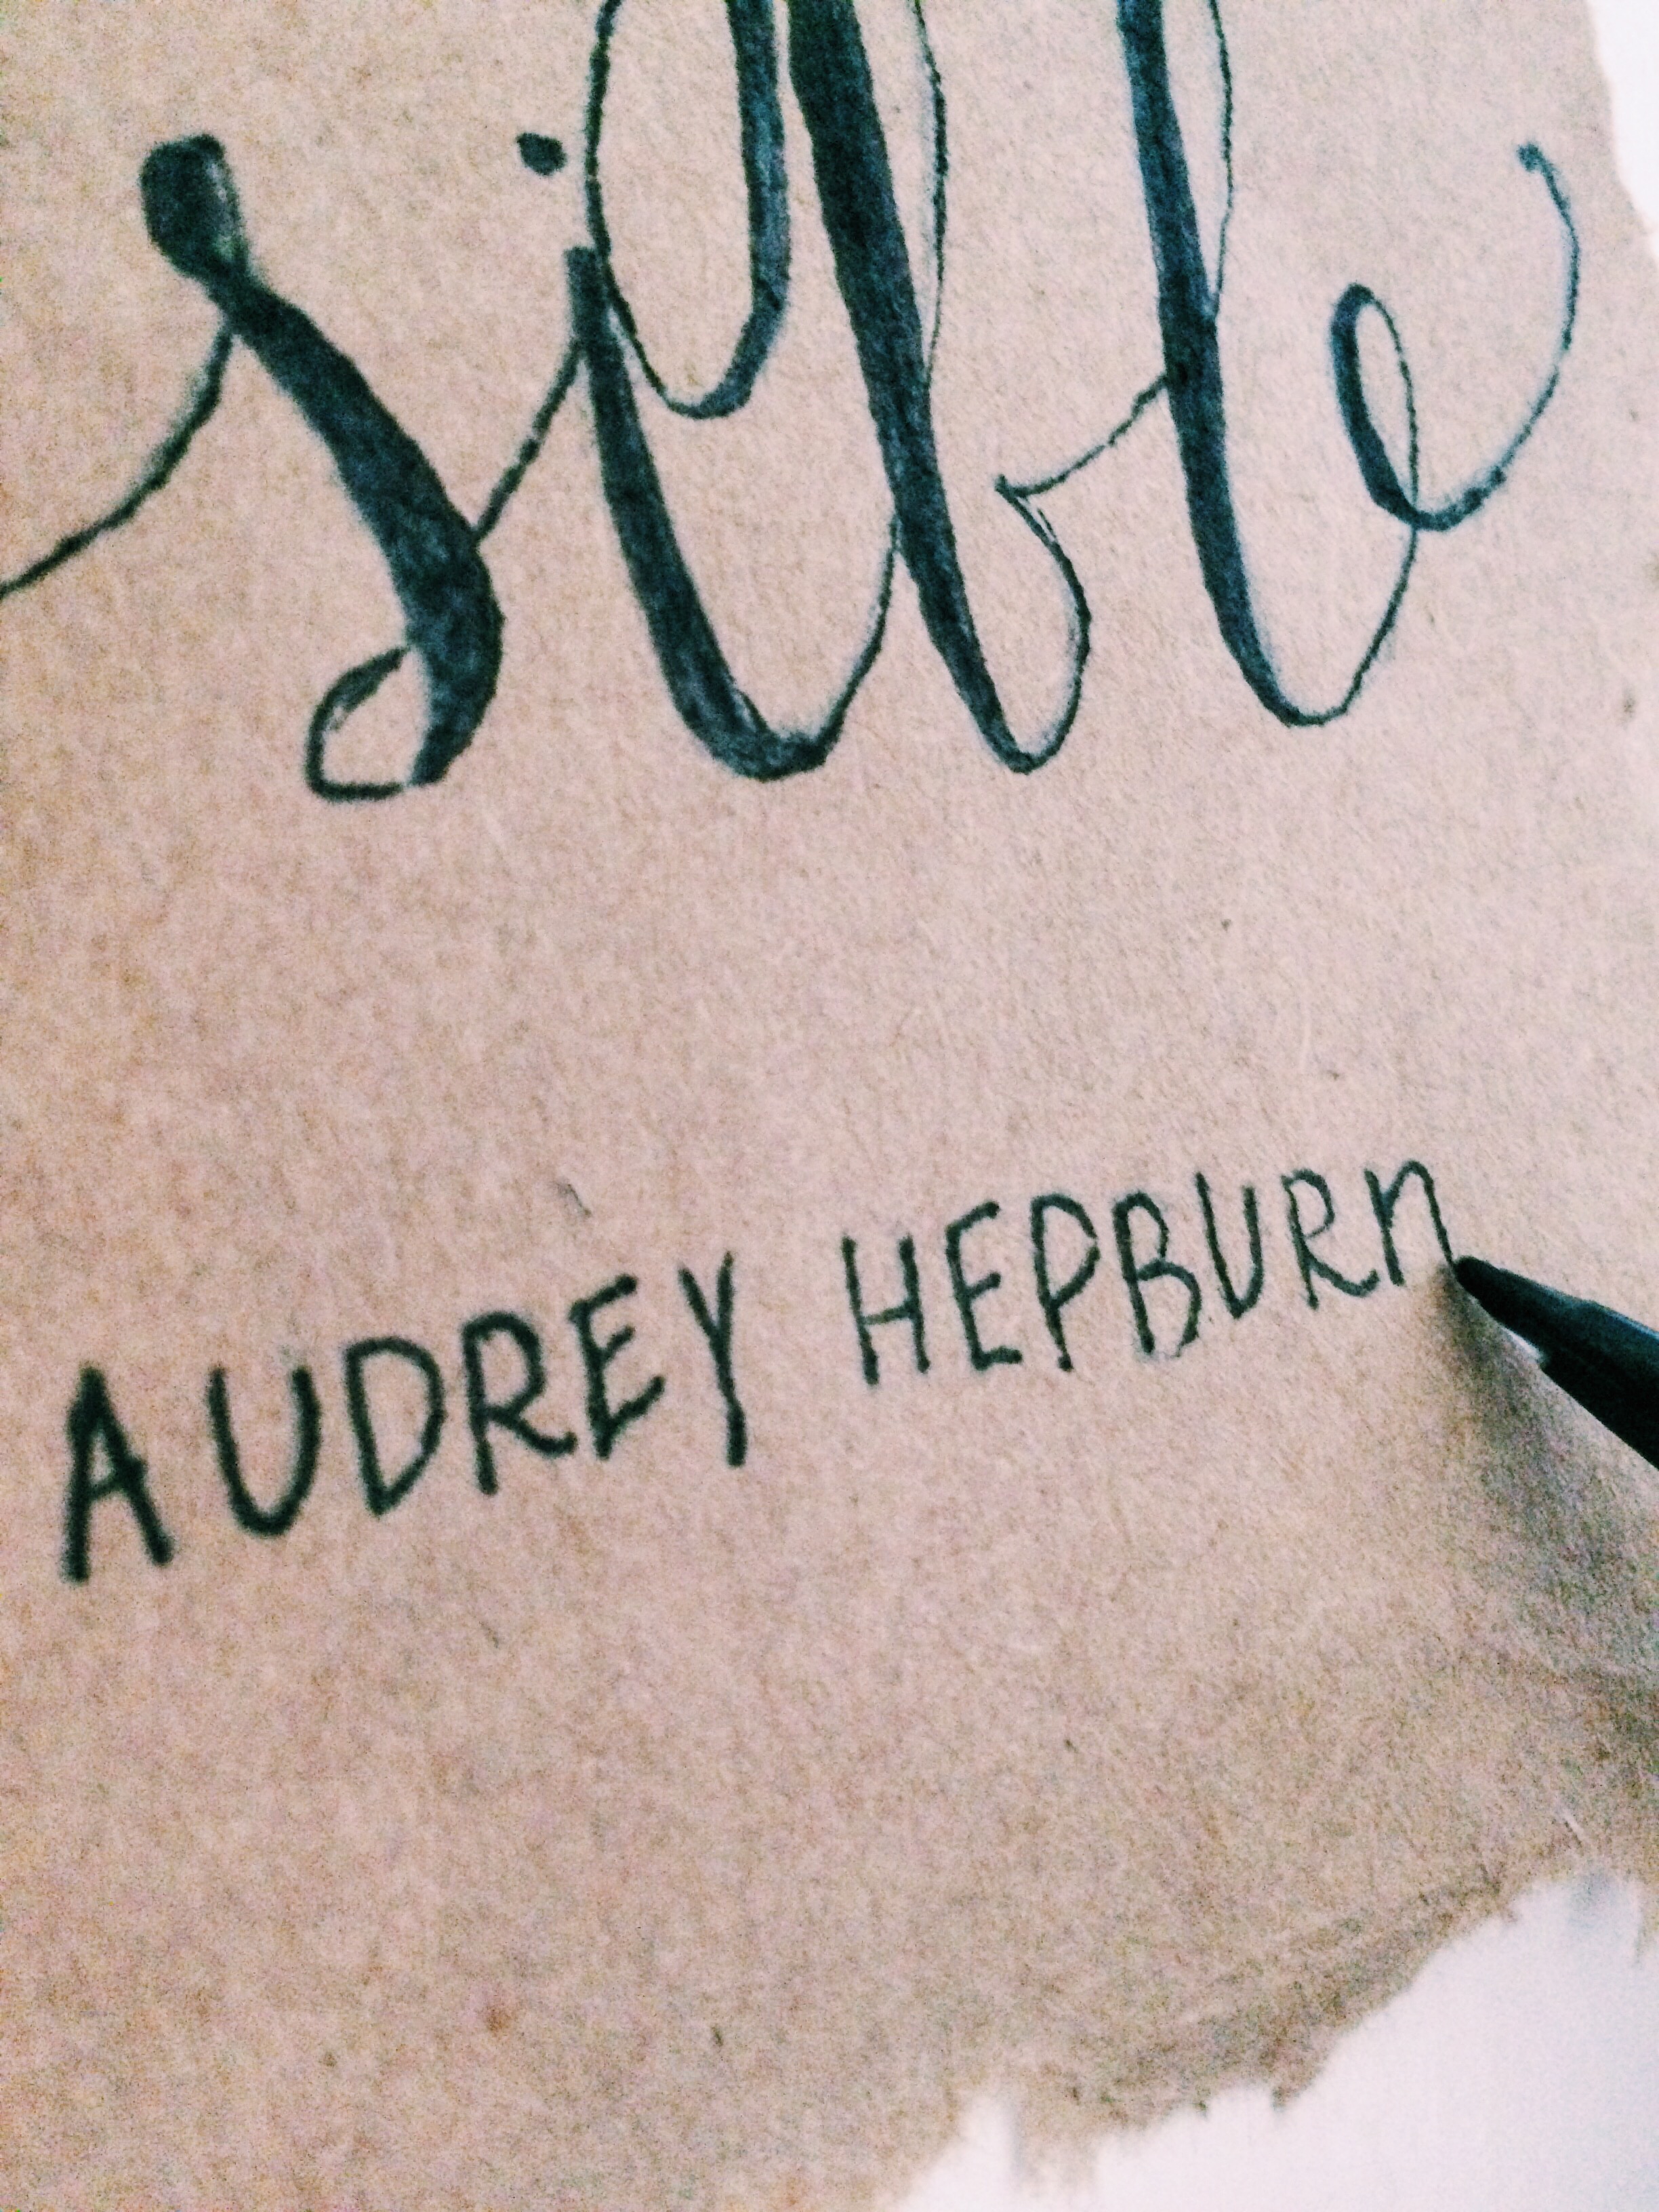 sible
AUDREY HEPBURn